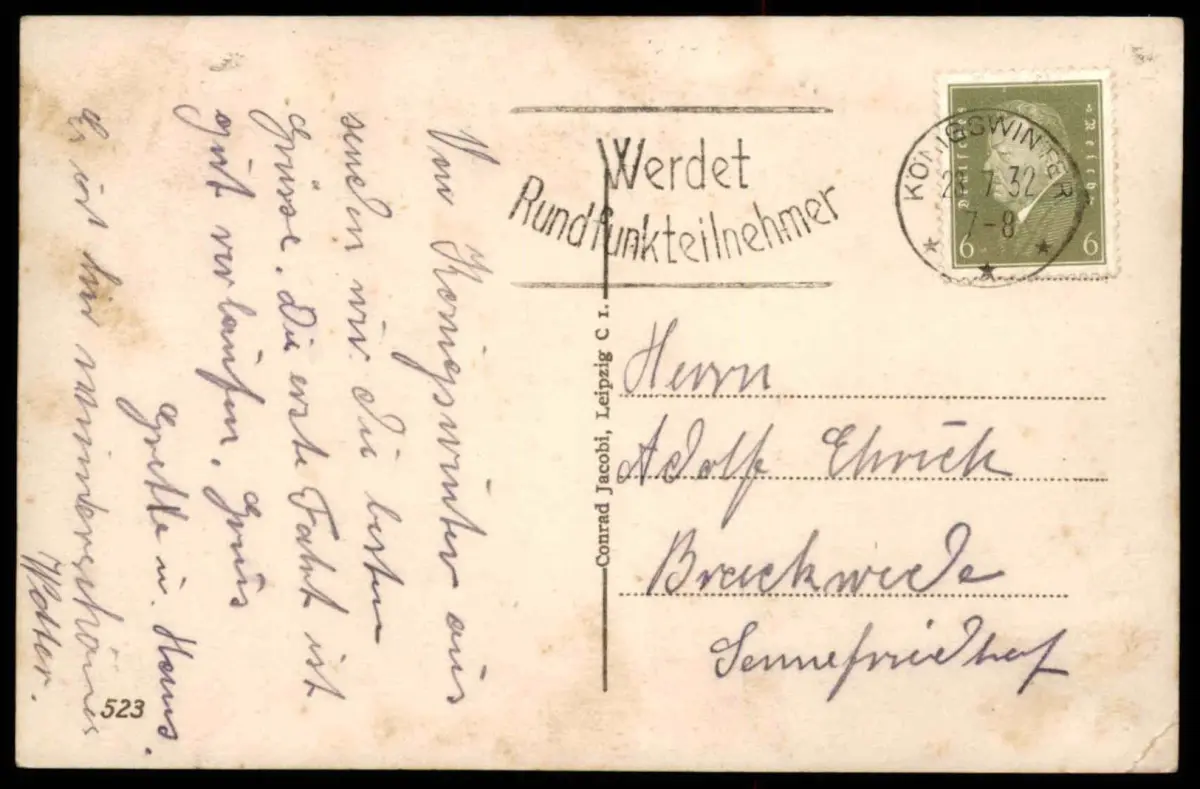 Von Königswinter aus
senden wir die besten
Grüsse. Die erste Fahrt ist
gut verlaufen. Gruss
Grete u. Hans.
Es ist hier wunderschönes
Wetter.
523
Conrad Jacobi, Leipzig C 1.
Werdet
Rundfunkteilnehmer
Deutsches Reich
6 6
KÖNIGSWINTER
7.32
7-8
Herrn
Adolf Ehrich
Brackwede
Sennefriedhof